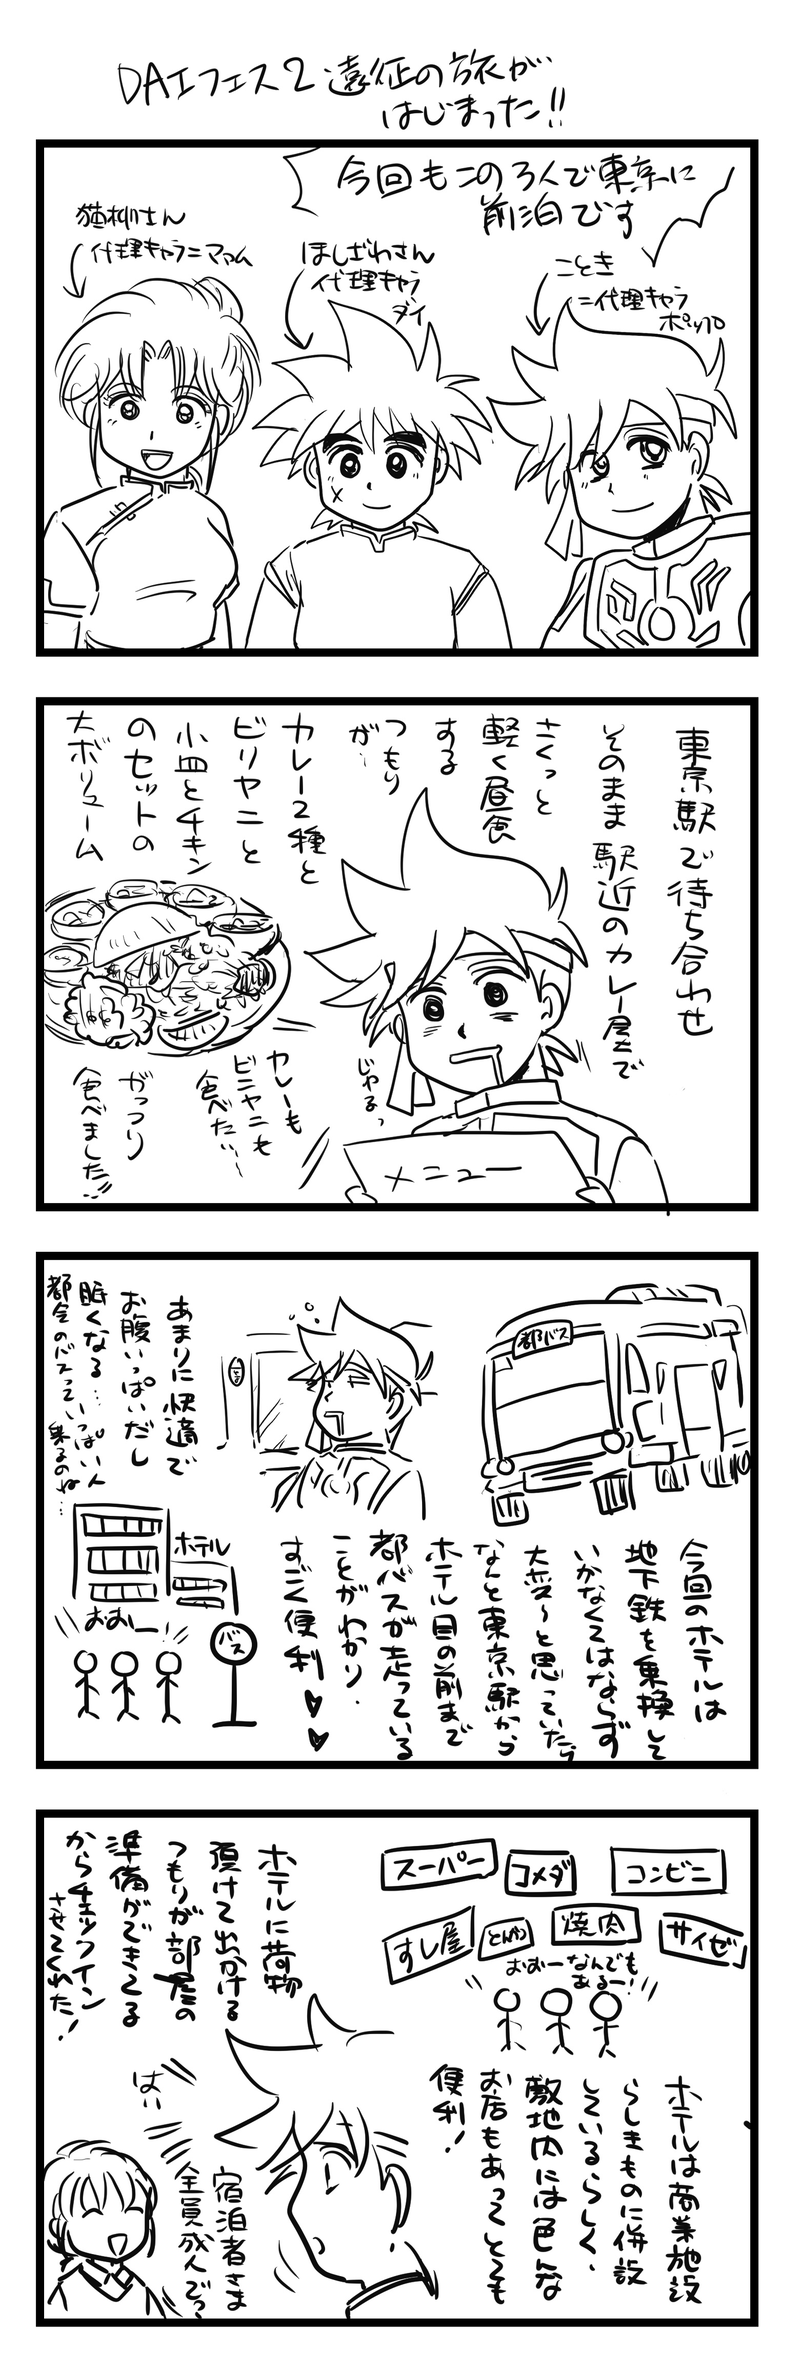 DAIフェス2遠征の旅が
はじまった!!
今回もこの3人で東京に
前泊です
ことき
=代理キャラ
ポップ
ほしざわさん
代理キャラ
ダイ
猫柳さん
代理キャラ=マァム
東京駅で待ち合わせ
そのまま駅近のカレー屋で
さくっと
軽く昼食
する
つもり
が…
カレー2種と
ビリヤニと
小皿とチキン
のセットの
大ボリューム
じゅるっ
メニュー
カレーも
ビニヤニも
食べたい…
がっつり
食べました!!
都バス
今回のホテルは
地下鉄を乗換して
いかなくてはならず
大変〜と思っていたら
なんと東京駅から
ホテル目の前まで
都バスが走っている
ことがわかり、
すごく便利♥♥
あまりに快適で
お腹いっぱいだし
眠くなる…
都会のバスっていっぱい人
乗るのね…
ホテル
おおー
バス
スーパー
コメダ
コンビニ
すし屋
とんかつ
焼肉
サイゼ
おおーなんでも
あるー!
ホテルは商業施設
らしきものに併設
しているらしく、
敷地内には色んな
お店もあってとても
便利!
ホテルに荷物
預けて出かける
つもりが部屋の
準備ができてる
からチェックイン
させてくれた!
はい
宿泊者さま
全員成人でっ